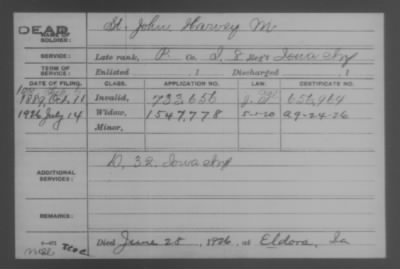 DEAD
NAME OF SOLDIER: St. John Harvey M
SERVICE: Late rank, P Co. I, 8 Reg't Iowa Inf
TERM OF SERVICE: Enlisted , 1 Discharged , 1
DATE OF FILING. CLASS. APPLICATION NO. LAW. CERTIFICATE NO.
1889, Oct. 11 Invalid, 732,656 G. 656,964
1926 July 14 Widow, 1547,778 5-1-20 A9-24-26
Minor,
ADDITIONAL SERVICES: D, 32 Iowa Inf
REMARKS:
Died June 28, 1926, at Eldora, Ia